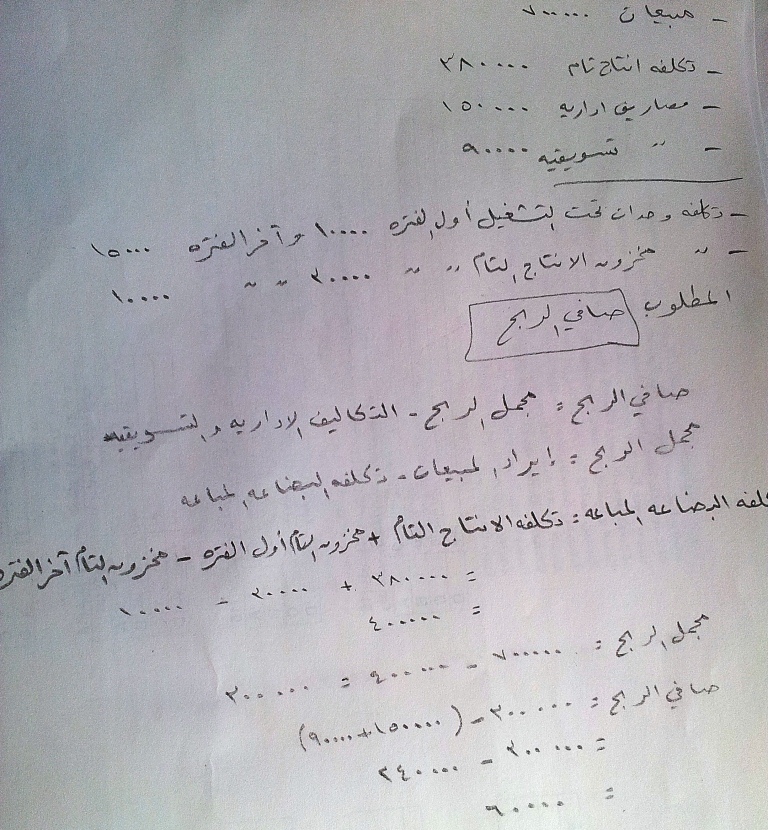 - مبيعات ٧٠٠٠٠٠
- تكلفه انتاج تام ٣٨٠٠٠٠
- مصاريف اداريه ١٥٠٠٠٠
- " تسويقيه ٩٠٠٠٠
- تكلفه وحدات تحت التشغيل أول الفتره ١٠٠٠٠ وآخر الفتره ١٥٠٠٠
- " مخزون الانتاج التام " " ٣٠٠٠٠ " " ١٠٠٠٠
المطلوب صافي الربح
صافي الربح = مجمل الربح - التكاليف الاداريه والتسويقيه
مجمل الربح = إيراد المبيعات - تكلفه البضاعه المباعه
تكلفه البضاعه المباعه = تكلفه الانتاج التام + مخزون التام أول الفتره - مخزون التام آخر الفتره
= ٣٨٠٠٠٠ + ٣٠٠٠٠ - ١٠٠٠٠
= ٤٠٠٠٠٠
مجمل الربح = ٧٠٠٠٠٠ - ٤٠٠٠٠٠ = ٣٠٠٠٠٠
صافي الربح = ٣٠٠٠٠٠ - (١٥٠٠٠٠+٩٠٠٠٠)
= ٣٠٠٠٠٠ - ٢٤٠٠٠٠
= ٦٠٠٠٠